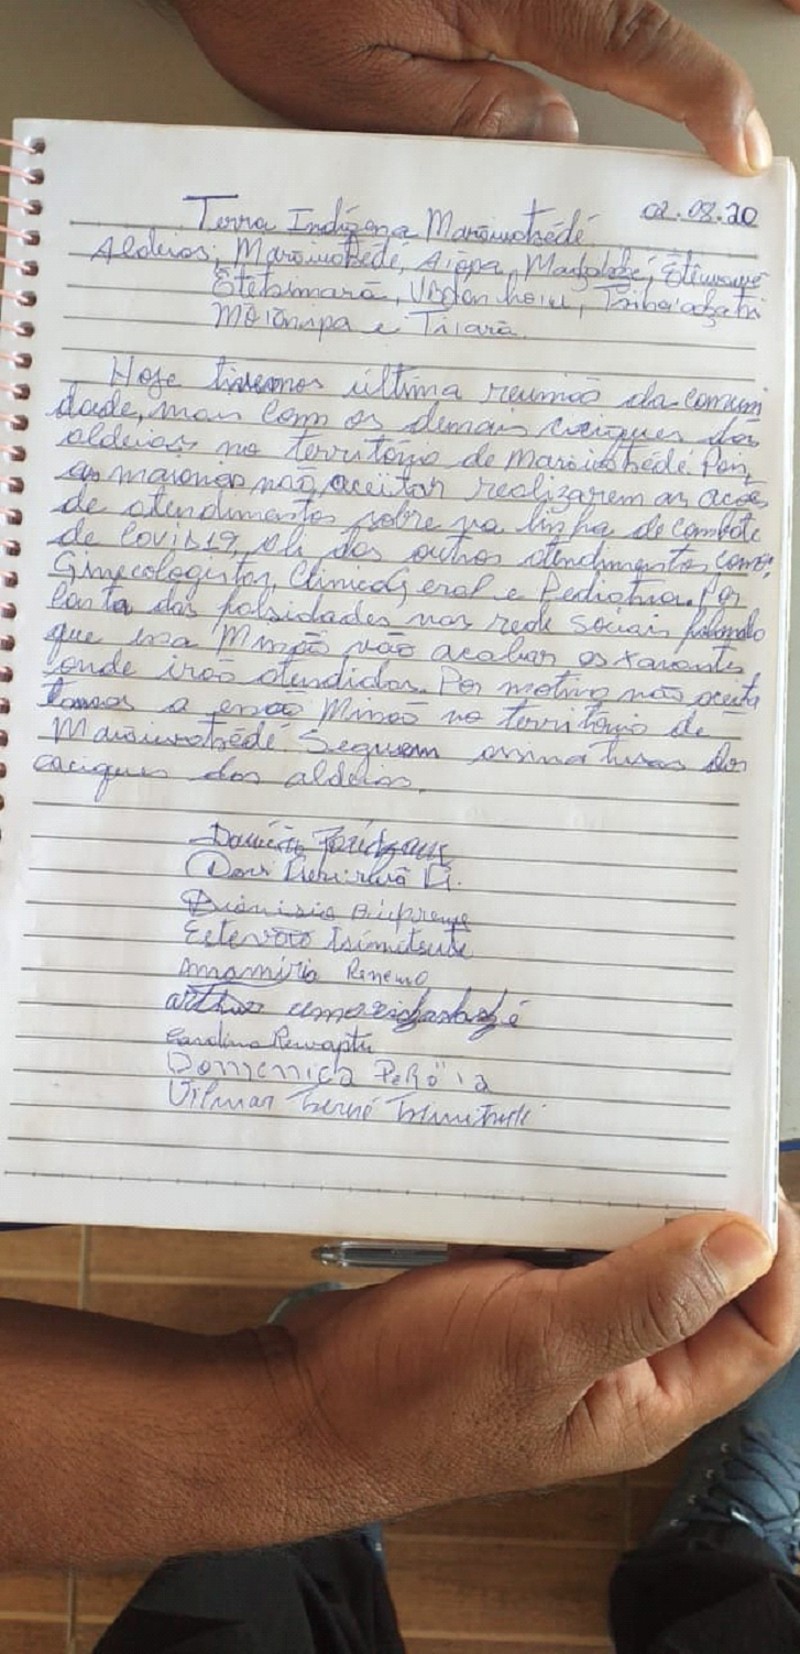 02.08.20
Terra Indígena Marãiwatsédé
Aldeias; Marãiwatsédé, Aiopa, Madzabdzé, Etewawe
Etetsimarã,
Moonipa e Tiiarã.
Hoje tivemos última reunião da comuni
dade, mais com os demais caciques das
aldeias no território de Marãiwatsédé. Pois,
as maiorias não aceitar realizarem as acões
de atendimentos sobre na linha de combate
de Covid19, ali dos outros atendimentos como:
Ginecologistas, Clinica Geral e Pediatria. Por
conta das falsidades nas rede sociais falando
que essa Missão vão acabar os xavantes
onde irão atendidos. Por motivo não aceita
tamos a essão Missão no território de
Marãiwatsédé. Seguem assinaturas dos
caciques das aldeias.
Damião
Dario
Dionisio
Estevão Tsimitsute
Renemo
Carolina Rewaptu
Domenica
Vilmar